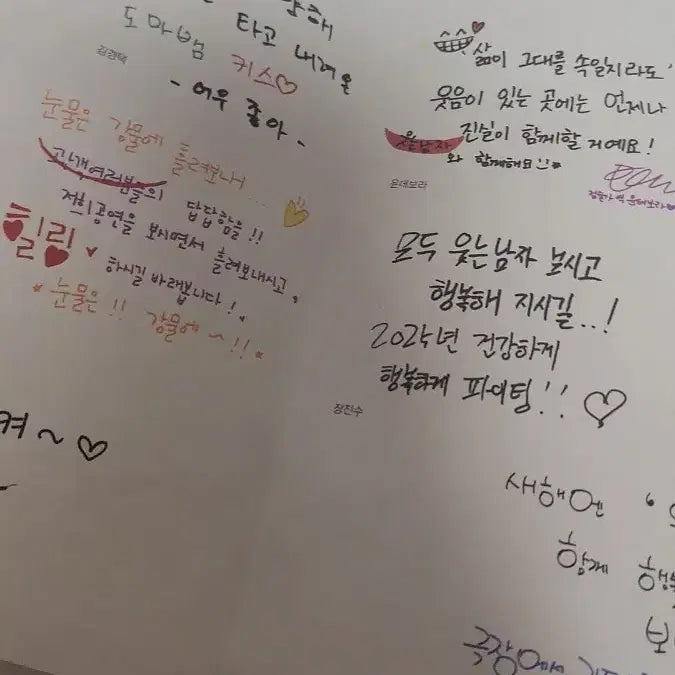 도마뱀 타고 내려온
키스♡
- 어우 좋아 -
김경택
눈물은 강물에 흘려보내서...
관객여러분들의 답답함을 !!
저희공연을 보시면서 흘려보내시고,
힐링♥ 하시길 바래봅니다 !
* 눈물은 !! 강물에 ~ !! *
켜 ~ ♡
삶이 그대를 속일지라도'
웃음이 있는 곳에는 언제나
진실이 함께할 거예요 !
웃는남자와 함께해요 !!
윤데보라
모두 웃는남자 보시고
행복해 지시길...!
2025년 건강하게
행복하게 파이팅!! ♡
장진수
새해엔
함께
극장에서